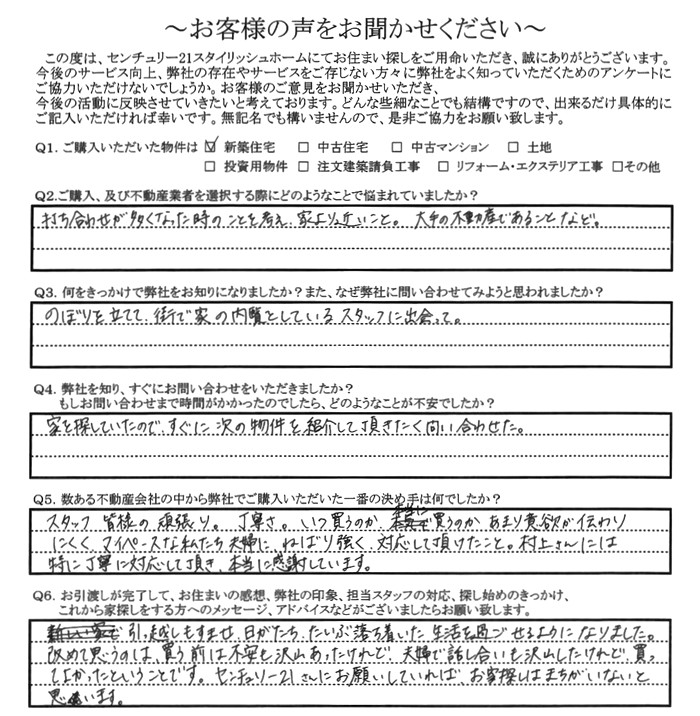 ～お客様の声をお聞かせください～
この度は、センチュリー21スタイリッシュホームにてお住まい探しをご用命いただき、誠にありがとうございます。
今後のサービス向上、弊社の存在やサービスをご存じない方々に弊社をよく知っていただくためのアンケートに
ご協力いただけないでしょうか。お客様のご意見をお聞かせいただき、
今後の活動に反映させていきたいと考えております。どんな些細なことでも結構ですので、出来るだけ具体的に
ご記入いただければ幸いです。無記名でも構いませんので、是非ご協力をお願い致します。
Q1. ご購入いただいた物件は ☑ 新築住宅 □ 中古住宅 □ 中古マンション □ 土地
□ 投資用物件 □ 注文建築請負工事 □ リフォーム・エクステリア工事 □その他
Q2.ご購入、及び不動産業者を選択する際にどのようなことで悩まれていましたか?
打ち合わせが多くなった時のことを考え、家より近いこと。大手の不動産であることなど。
Q3. 何をきっかけで弊社をお知りになりましたか?また、なぜ弊社に問い合わせてみようと思われましたか?
のぼりを立てて、街で家の内覧としているスタッフに出会って。
Q4. 弊社を知り、すぐにお問い合わせをいただきましたか?
もしお問い合わせまで時間がかかったのでしたら、どのようなことが不安でしたか?
家を探していたので、すぐに次の物件を紹介して頂きたく問い合わせた。
Q5. 数ある不動産会社の中から弊社でご購入いただいた一番の決め手は何でしたか?
スタッフ皆様の頑張り。丁寧さ。いつ買うのか、本当に買うのか、あまり意欲が伝わり
にくく、マイペースな私たち夫婦に、ねばり強く、対応して頂けたこと。村上さんには
特に丁寧に対応して頂き、本当に感謝しています。
Q6. お引渡しが完了して、お住まいの感想、弊社の印象、担当スタッフの対応、探し始めのきっかけ、
これから家探しをする方へのメッセージ、アドバイスなどがございましたらお願い致します。
引っ越しもすませ、日がたち、だいぶ落ち着いた生活を過ごせるようになりました。
改めて思うのは、買う前は不安も沢山あったけれど、夫婦で話し合いも沢山したけれど、買っ
てよかったということです。センチュリー21さんにお願いしていれば、お家探しはまちがいないと
思います。